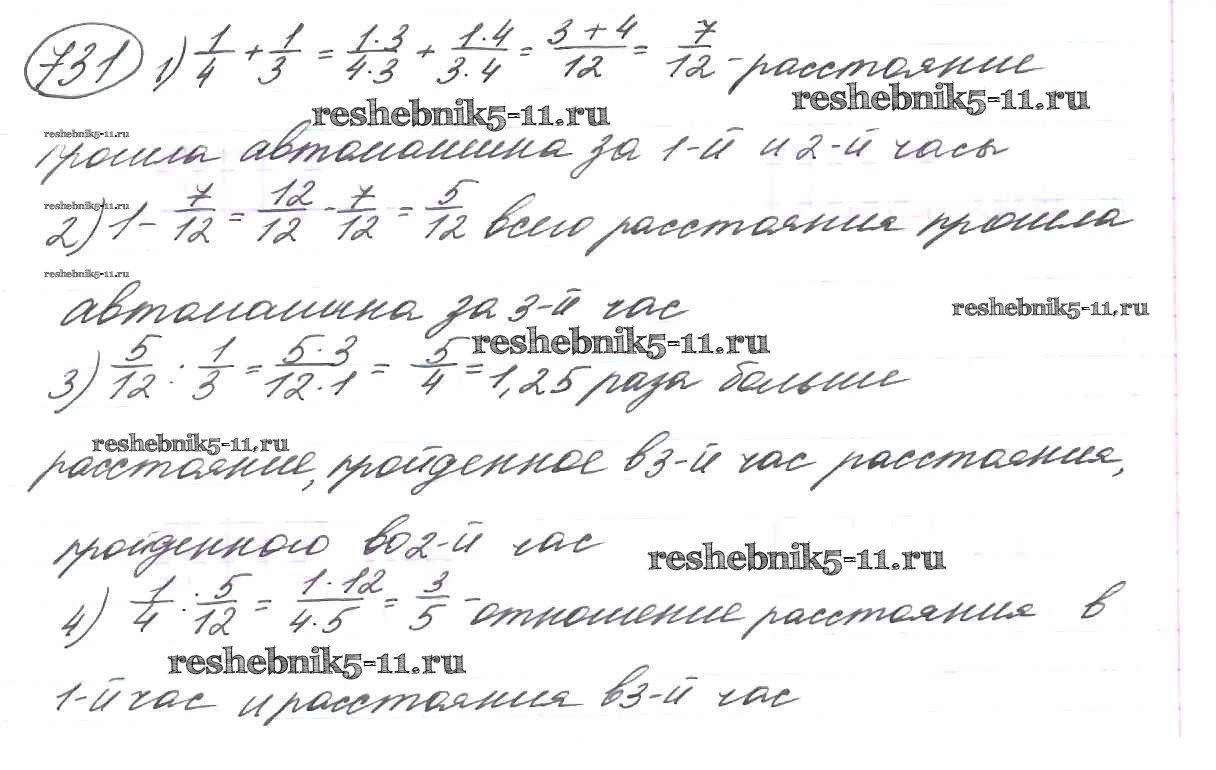 731 1) 1/4 + 1/3 = 1·3/4·3 + 1·4/3·4 = 3+4/12 = 7/12 - расстояние
reshebnik5-11.ru reshebnik5-11.ru
reshebnik5-11.ru
прошла автомашина за 1-й и 2-й часы
reshebnik5-11.ru
2) 1 - 7/12 = 12/12 - 7/12 = 5/12 всего расстояния прошла
reshebnik5-11.ru
автомашина за 3-й час
reshebnik5-11.ru
reshebnik5-11.ru
3) 5/12 : 1/3 = 5·3/12·1 = 5/4 = 1,25 раза больше
reshebnik5-11.ru
расстояние, пройденное в 3-й час расстояния,
пройденного во 2-й час
reshebnik5-11.ru
4) 1/4 : 5/12 = 1·12/4·5 = 3/5 - отношение расстояния в
reshebnik5-11.ru
1-й час и расстояния в 3-й час